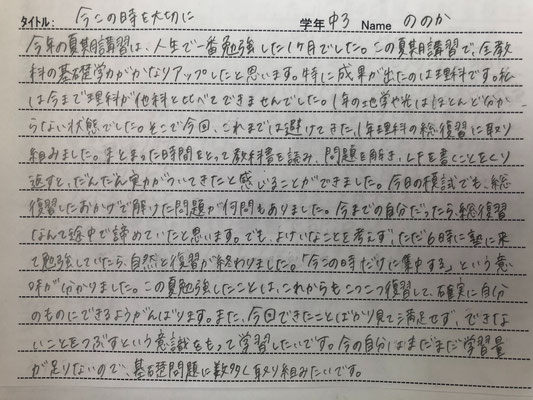 タイトル: 今この時を大切に 学年 中3 Name ののか
今年の夏期講習は、人生で一番勉強した1ヶ月でした。この夏期講習で、全教
科の基礎学力がかなりアップしたと思います。特に成果が出たのは理科です。私
は今まで理科が他科と比べてできませんでした。1年の地学や光はほとんど分か
らない状態でした。そこで今回、これまでは避けてきた、1年理科の総復習に取り
組みました。まとまった時間をとって教科書を読み、問題を解き、レPを書くことをくり
返すと、だんだん実力がついてきたと感じることができました。今日の模試でも、総
復習したおかげで解けた問題が何問もありました。今までの自分だったら、総復習
なんて途中で諦めていたと思います。でも、よけいなことを考えず、ただ6時に塾に来
て勉強していたら、自然と復習が終わりました。「今この時だけに集中する」という意
味が分かりました。この夏勉強したことは、これからもこつこつ復習して、確実に自分
のものにできるようがんばります。また、今回できたことばかり見て満足せず、できな
いことをつぶすという意識をもって学習したいです。今の自分はまだまだ学習量
が足りないので、基礎問題に数多く取り組みたいです。